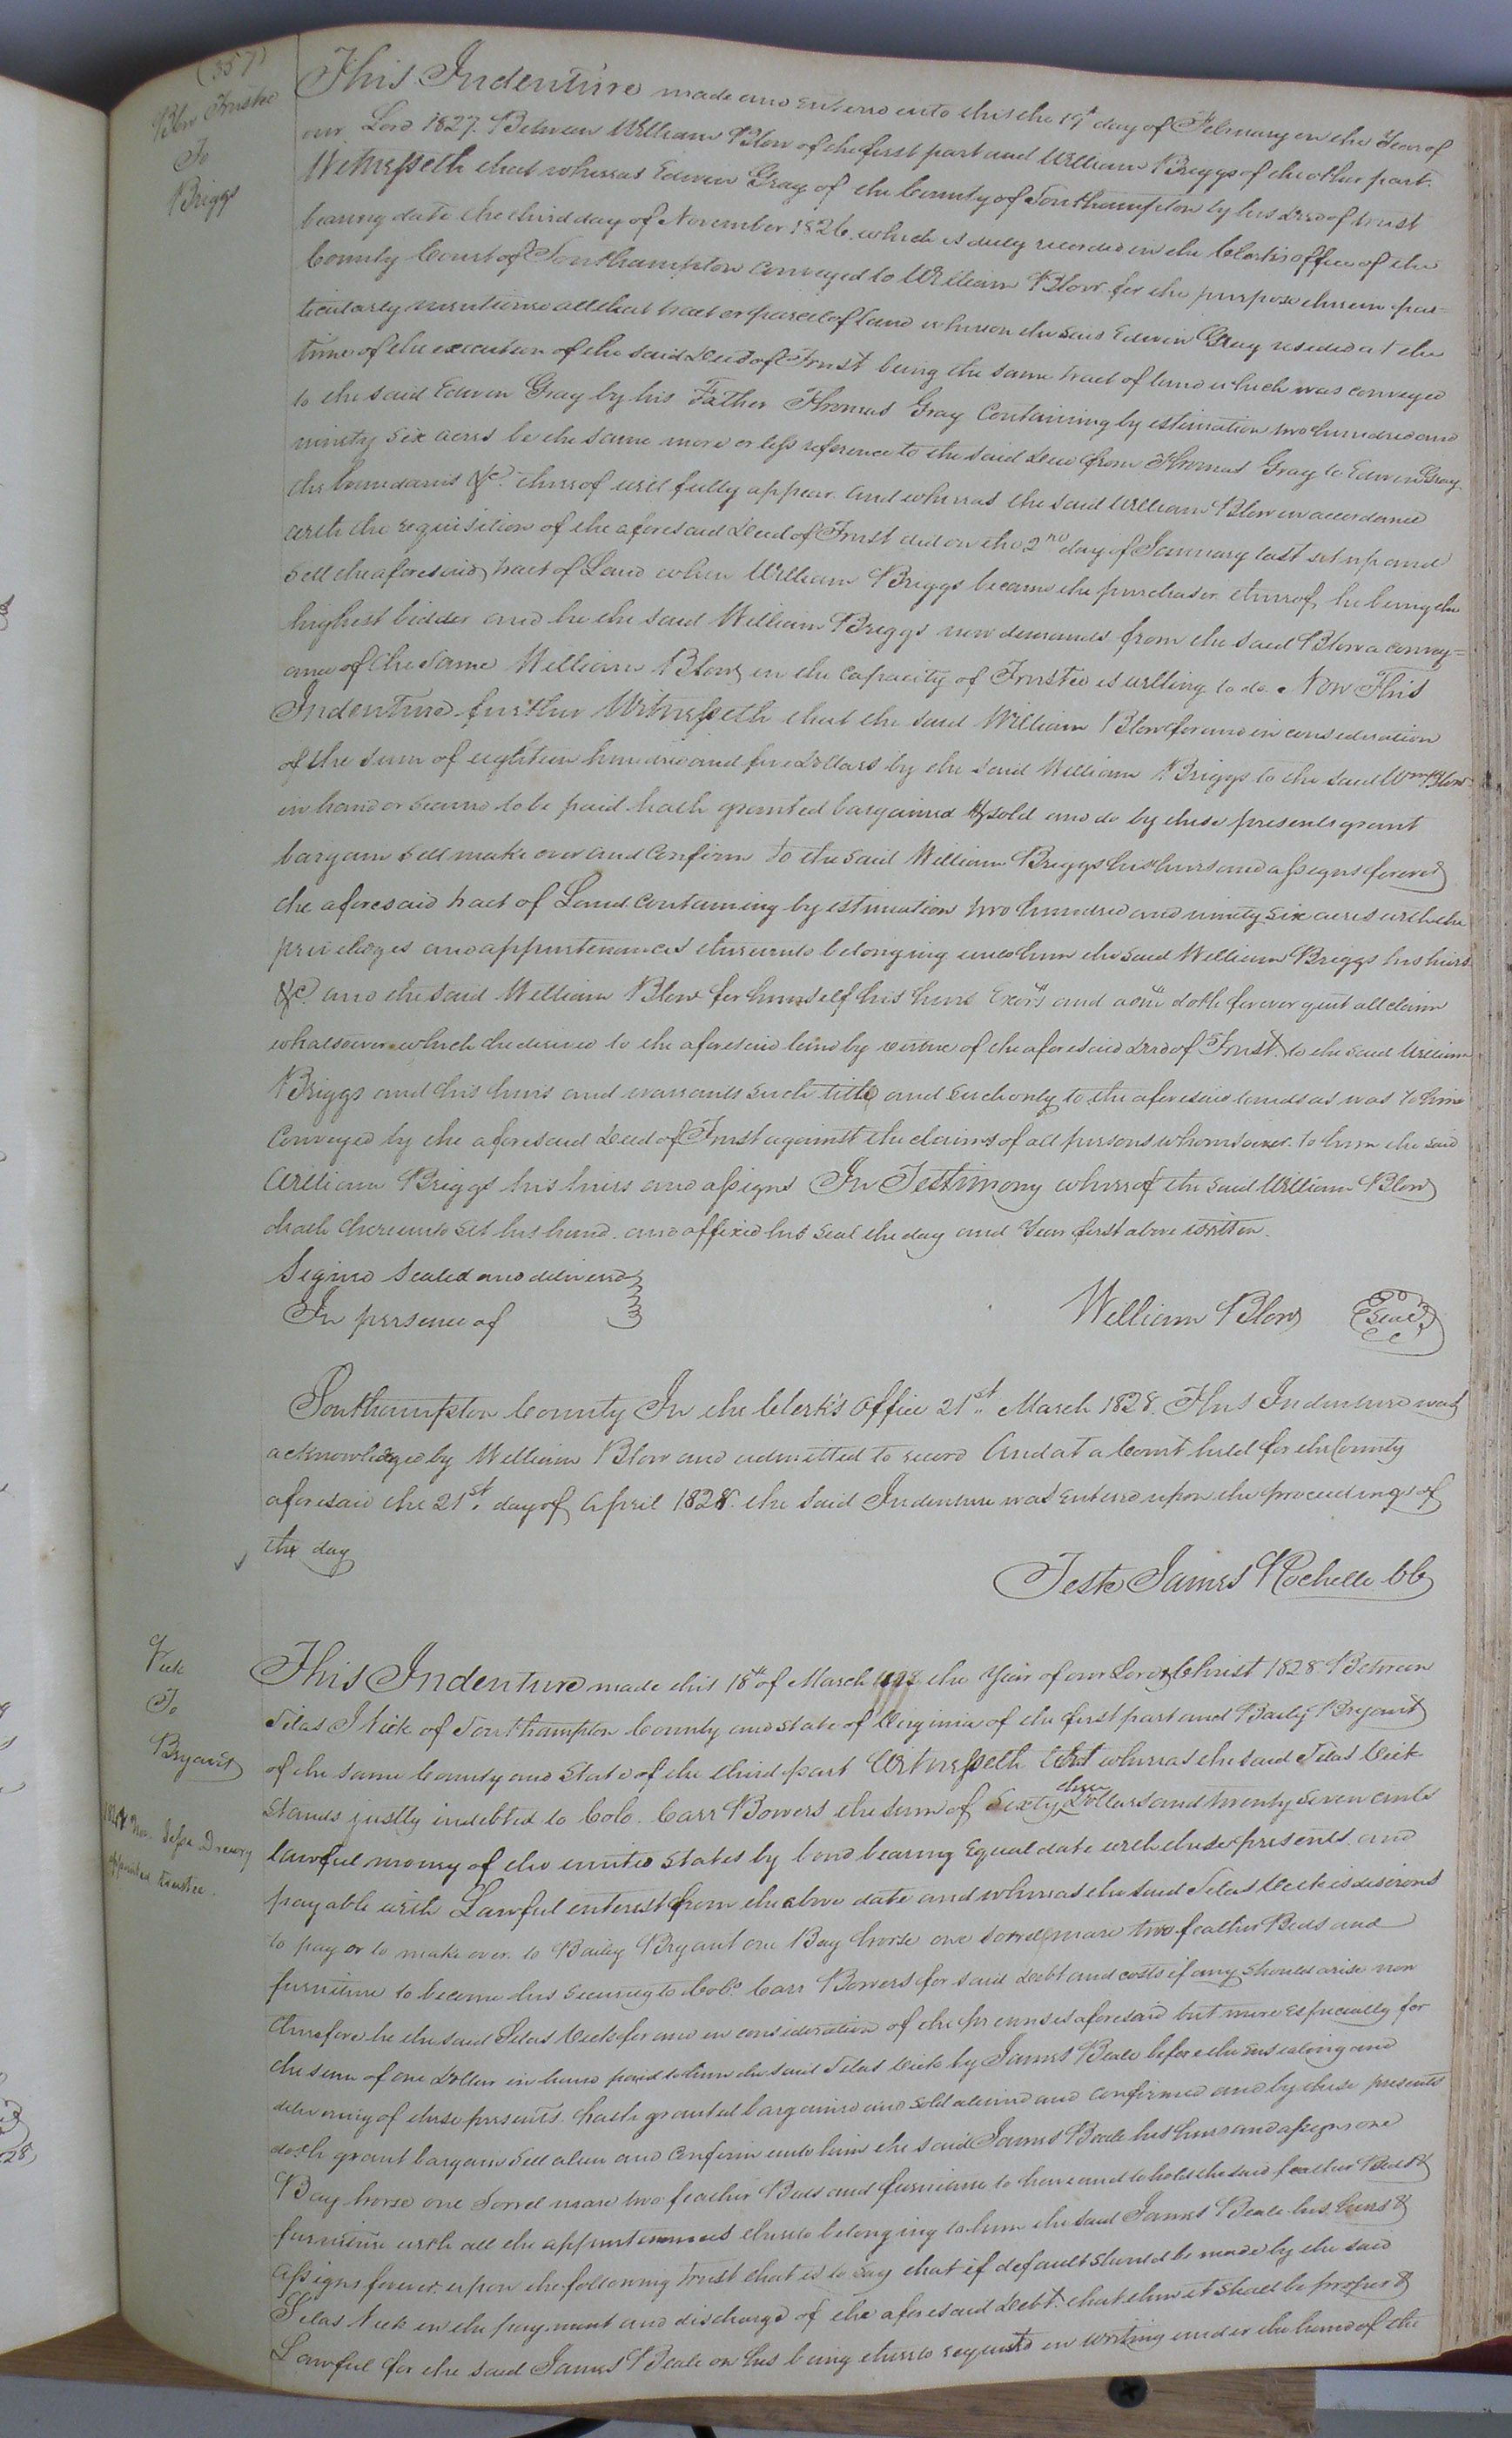 (357)
Blow Trustee
To
Briggs
This Indenture made and entered into this the 19th day of February in the Year of
our Lord 1827. Between William Blow of the first part and William Briggs of the other part.
Witnesseth that whereas Edwin Gray of the County of Southampton by his deed of trust
bearing date the third day of November 1826. which is duly recorded in the Clerk's office of the
County Court of Southampton conveyed to William Blow for the purpose therein par-
ticularly mentioned all that tract or parcel of land whereon the said Edwin Gray resided at the
time of the execution of the said Deed of Trust being the same tract of land which was conveyed
to the said Edwin Gray by his Father Thomas Gray Containing by estimation two hundred and
ninety six acres be the same more or less reference to the said Deed from Thomas Gray to Edwin Gray
the boundaries &c. thereof will fully appear. And whereas the said William Blow in accordance
with the requisition of the aforesaid Deed of Trust did on the 2nd day of January last set up and
Sell the aforesaid tract of Land when William Briggs became the purchaser thereof he being the
highest bidder and he the said William Briggs now demands from the said Blow a convey=
ance of the same William Blow in the Capacity of Trustee is willing to do. Now This
Indenture further Witnesseth that the said William Blow for and in consideration
of the sum of eighteen hundred and five Dollars by the said William Briggs to the said Wm Blow
in hand or secured to be paid hath granted bargained & sold and do by these presents grant
bargain Sell make over and Confirm to the said William Briggs his heirs and assigns forever
the aforesaid tract of Land containing by estimation two hundred and ninety six acres with the
priviledges and appurtenances thereunto belonging unto him the said William Briggs his heirs
&c. and the said William Blow for himself his heirs Exors and adm doth forever quit all claim
whatsoever which he derived to the aforesaid land by virtue of the aforesaid deed of Trust. to the said William
Briggs and his heirs and warrants such title and such only to the aforesaid lands as was to him
Conveyed by the aforesaid Deed of Trust against the claims of all persons whomsoever. to him the said
William Briggs his heirs and assigns In Testimony whereof the said William Blow
hath hereunto set his hand and affixed his Seal the day and Year first above written.
Signed Sealed and delivered
In presence of
William Blow Seal
Southampton County In the Clerk's Office 21st March 1828. This Indenture was
acknowledged by William Blow and admitted to record And at a Court held for the County
aforesaid the 21st. day of April 1828. the said Indenture was entered upon the proceedings of
the day
Teste James Rochelle CC
Vick
To
Bryant
1828 Jesse Drewry
appointed trustee.
This Indenture made this 18th of March 1828 the Year of our Lord Christ 1828 Between
Silas J Vick of Southampton County and State of Virginia of the first part and Baily Bryant
of the same County and State of the third part Witnesseth that whereas the said Silas Vick
Stands justly indebted to Colo. Carr Bowers the sum of Sixty three Dollars and twenty Seven cents
lawful money of the united States by bond bearing Equal date with these presents. and
payable with Lawful interest from the above date and whereas the said Silas Vick is desirous
to pay or to make over. to Bailey Bryant one Bay horse one Sorrel mare two feather Beds and
furniture to become his Security to Colo. Carr Bowers for said Debt and costs if any should arise now
therefore he the said Silas Vick for and in consideration of the premises aforesaid but more especially for
the sum of one Dollar in hand paid to him the said Silas Vick by James Beale before the ensealing and
delivering of these presents. hath granted bargained and sold aliened and confirmed and by these presents
doth grant bargain Sell alien and Confirm unto him the said James Beale his heirs and assigns one
Bay horse one Sorrel mare two feather Beds and furniture to have and to hold the said feather Beds &
furniture with all the appurtenances thereto belonging to him the said James Beale his heirs &
assigns forever. upon the following trust that is to say that if default should be made by the said
Silas Vick in the payment and discharge of the aforesaid Debt. that then it shall be proper &
Lawful for the said James Beale on his being thereto required in writing under the hand of the